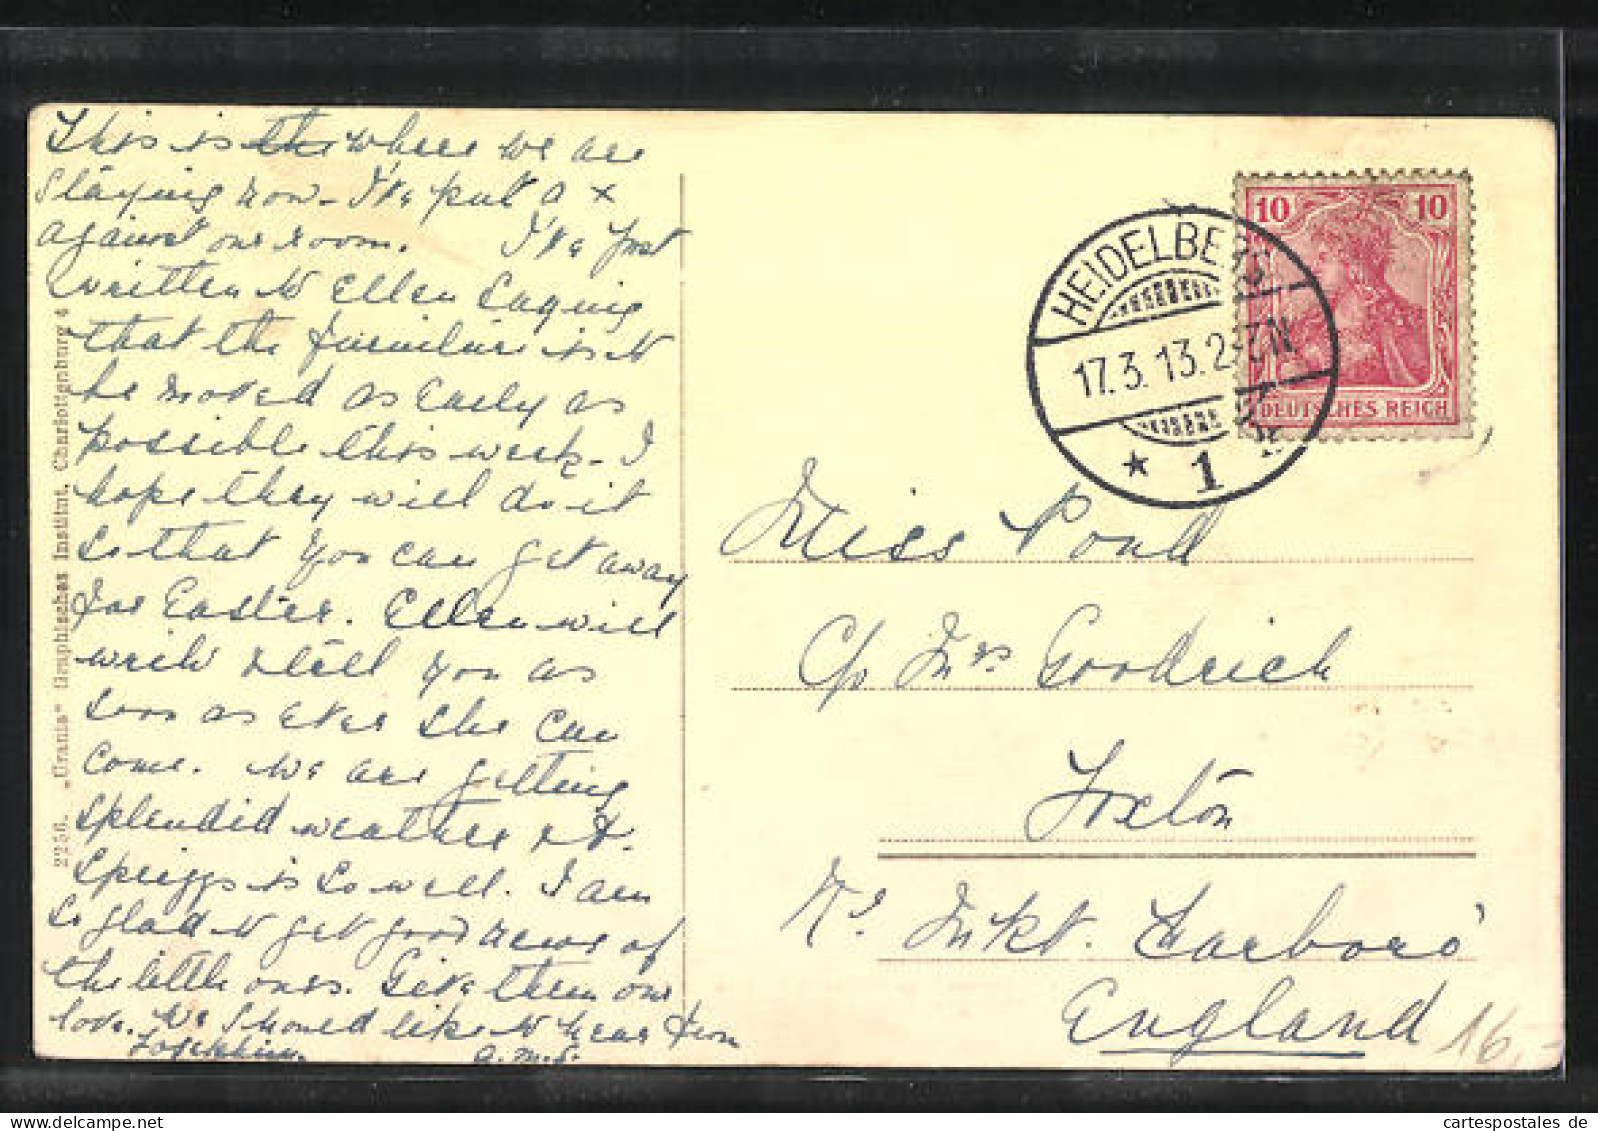 This is the where we are
staying now - I've put a x
against our room. I've just
written to Ellen saying
that the furniture is to
be moved as early as
possible this week - I
hope they will do it
so that you can get away
for Easter. Ellen will
wish you as
soon as ever she can
come. We are getting
splendid weather &
Spriggs is so well. I am
so glad to get good news of
the little ones. Give them our
love. We should like to hear from
a.m.s.
2256. „Urania" Graphisches Institut, Charlottenburg 4
HEIDELBERG
17.3.13.2-3N
* 1
10 10
DEUTSCHES REICH
Miss Pond
c/o Mrs Goodrich
Foxton
Nr Mkt. Harboro'
England
16,-
cartespostales de